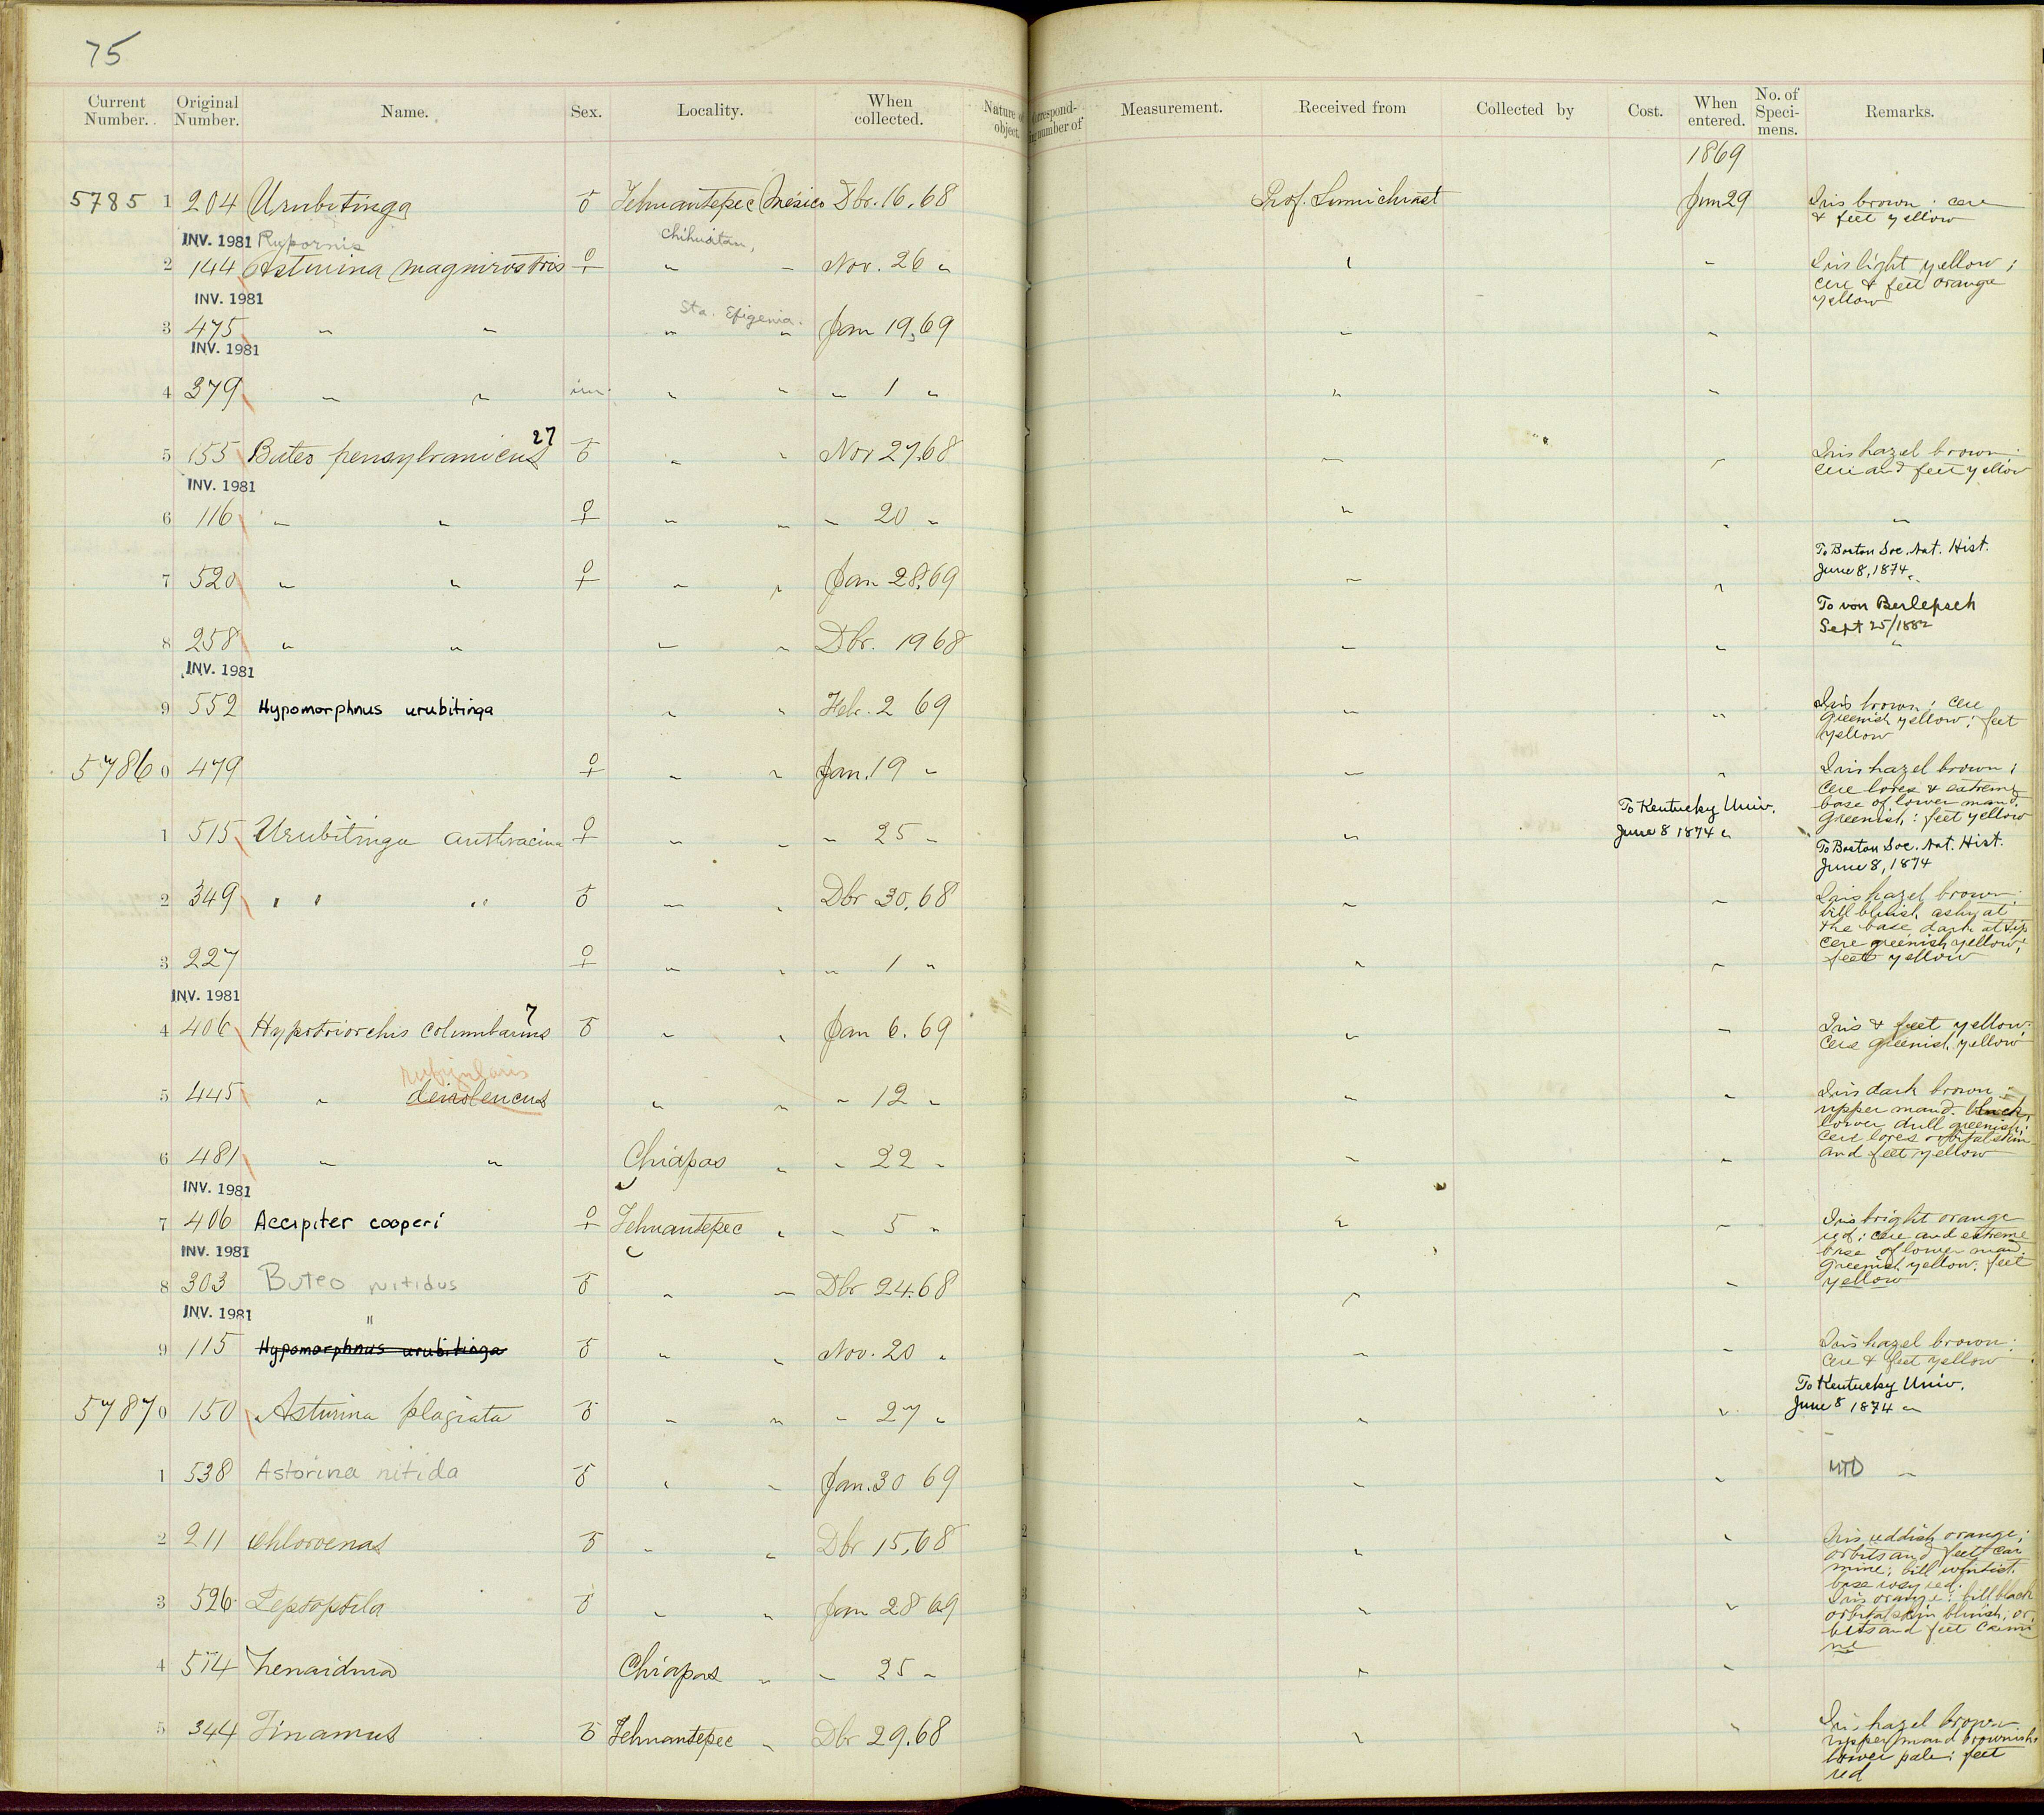 75
Current Number. Original Number. Name. Sex. Locality. When collected. Nature of object. Correspond-ing number of Measurement. Received from Collected by Cost. When entered. No. of Speci-mens. Remarks.
1869
5785 1 204 Urubitinga ♂ Tehuantepec Mexico Dbr. 16.68 Prof. Sumichrast Jun 29 Iris brown: cere
& feet yellow
INV. 1981 Rupornis Chihuitan,
2 144 Asturina magnirostris ♀ " " Nov. 26 " " " Iris light yellow;
cere & feet orange
yellow
INV. 1981 Sta. Efigenia.
3 475 " " " " Jan 19,69 " "
INV. 1981
4 379 " " im. " " " 1 " " "
27
5 155 Buteo pensylvanicus ♂ " " Nov 27.68 " " Iris hazel brown:
cere and feet yellow
INV. 1981
6 116 " " ♀ " " " 20 " " " "
To Boston Soc. Nat. Hist.
June 8, 1874 "
7 520 " " ♀ " " Jan 28.69 " "
To von Berlepsch
Sept 25/1882
8 258 " " " " Dbr. 19 68 " " "
INV. 1981
9 552 Hypomorphnus urubitinga " " Feb. 2 69 " " Iris brown: cere
greenish yellow: feet
yellow
57860 479 ♀ " " Jan. 19 " " " Iris hazel brown;
cere lores & extreme
base of lower mand.
greenish: feet yellow
To Kentucky Univ.
June 8 1874 "
1 515 Urubitinga anthracina ♀ " " " 25 " "
To Boston Soc. Nat. Hist.
June 8, 1874
2 349 " " " ♂ " " Dbr 30.68 " " Iris hazel brown:
bill bluish ashy at
the base dark at tip
cere greenish yellow;
feet yellow
3 227 ♀ " " " 1 " " "
INV. 1981
7
4 406 Hypotriorchis columbarius ♂ " " Jan 6. 69 " " Iris & feet yellow:
cere greenish yellow
rufigularis
5 445 " deiroleucus " " " 12 " " " Iris dark brown:
upper mand. black,
lower dull greenish;
cere lores orbital skin
and feet yellow
6 481 " " Chiapas " " 22 " " "
INV. 1981
7 406 Accipiter cooperi ♀ Tehuantepec " " 5 " " " Iris bright orange
red: cere and extreme
base of lower mand.
greenish yellow. feet
yellow
INV. 1981
8 303 Buteo nitidus ♂ " " Dbr 24.68 " "
INV. 1981 "
9 115 Hypomorphnus urubitinga ♂ " " Nov. 20 " " " Iris hazel brown:
cere & feet yellow
To Kentucky Univ.
June 8 1874 "
57870 150 Asturina plagiata ♂ " " " 27 " " "
1 538 Astorina nitida ♂ " " Jan. 30 69 " " MTD "
2 211 Chloroenas ♂ " " Dbr 15.68 " " Iris reddish orange;
orbits and feet car
mine; bill whitish
base rosy red.
3 526 Leptoptila ♂ " " Jan 28 69 " " Iris orange: bill black
orbital skin bluish, or
bits and feet carmi
ne
4 514 Zenaidura Chiapas " " 25 " " "
5 344 Tinamus ♂ Tehuantepec " Dbr 29.68 " " Iris hazel brown
upper mand brownish:
lower pale; feet
red